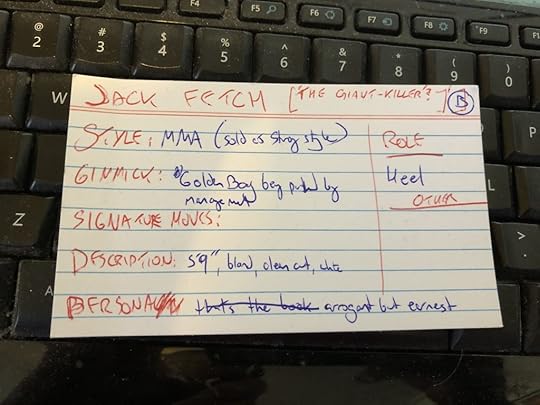 F5 F6 F7 F8 F9 F10 F11
@ # $ % ^ & * ( )
2 3 4 5 6 7 8 9 0
W P
JACK FETCH [THE GIANT-KILLER?] B
STYLE: MMA (sold as strong style)
ROLE
GIMMICK: Golden Boy being pushed by
management
Heel
OTHER
SIGNATURE MOVES:
DESCRIPTION: 5'9", blond, clean cut,
that's the book arrogant but earnest
A
Z
> .